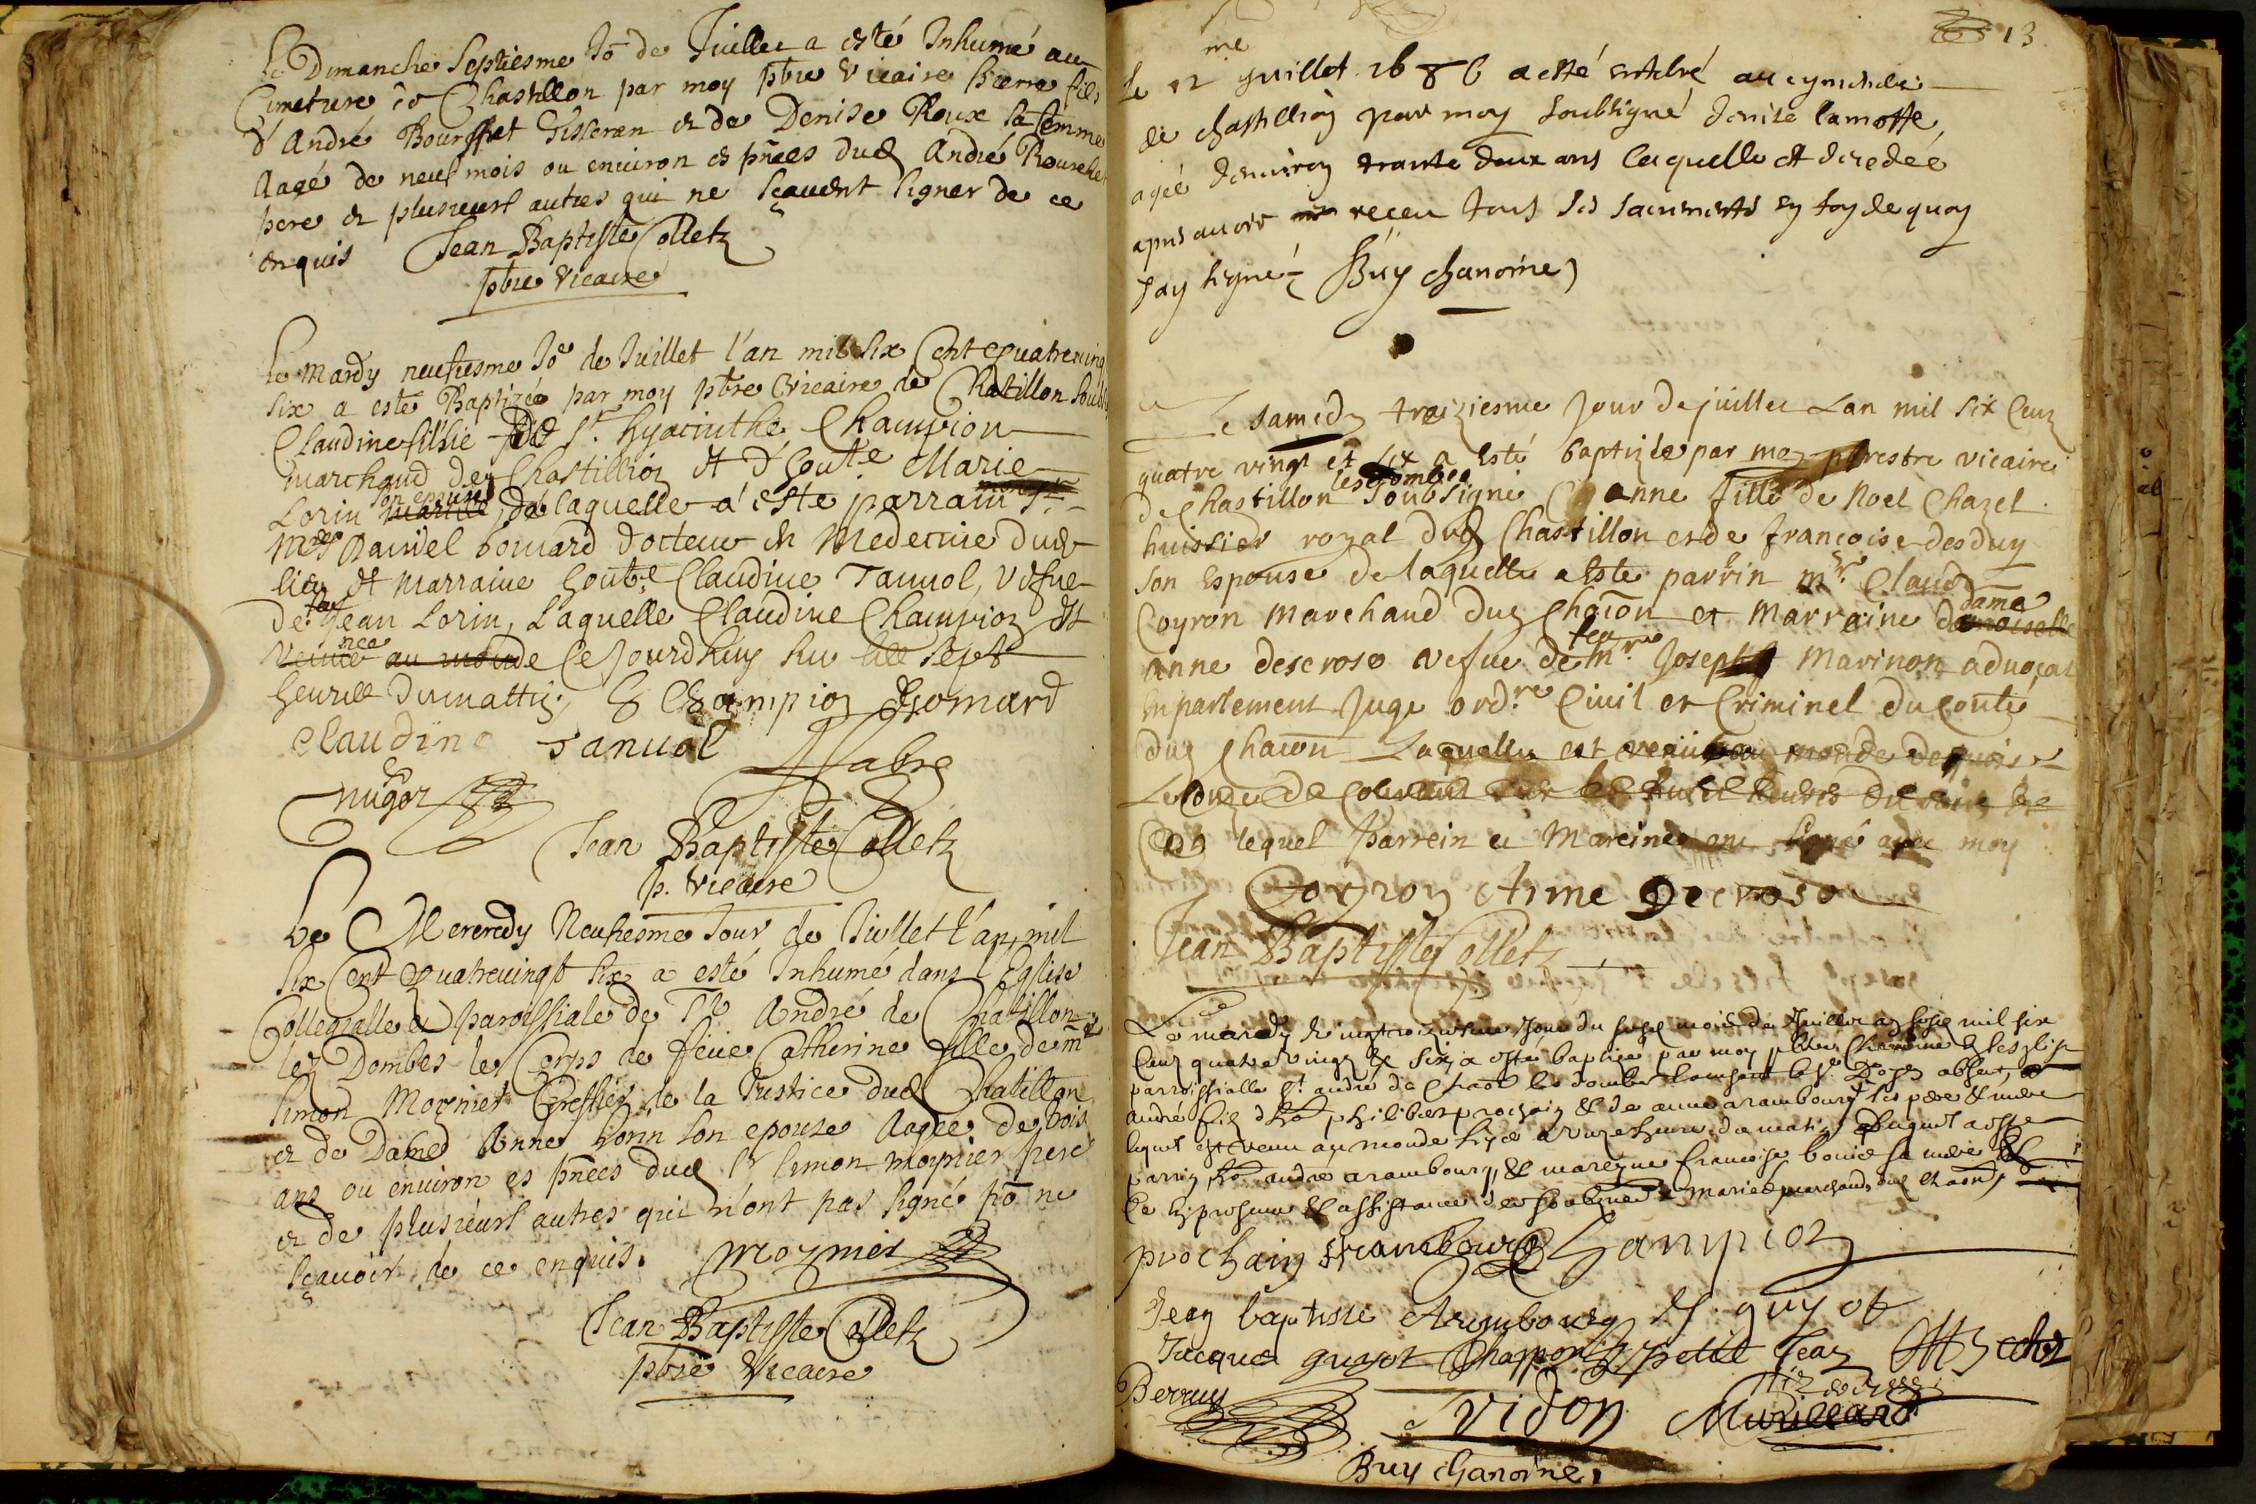 Le Dimanche Septiesme Jo de Juillet a esté Inhumé au
Cimetiere de Chastillon par moy pbre Vicaire Pierre fils
d'André Tisseran et de Denise Roux sa femme
Aagé de neuf mois ou environ es pñces dud André
pere et plusieurs autres qui ne sçavent signer de ce
enquis Jean Baptiste Colletz
pbre Vicaire
Le Mardy neufiesme Jo de Juillet l'an mil six Cent Quatreving
six a esté Baptizée par moy pbre Vicaire de Chatillon
Claudine fillie de Sr hyacinthe Champion
marchand de Chastillion et d' honte Marie
son epouse
Lorin de laquelle a este parrain Sr
Daniel bomard docteur en Medecine dud
lieu et Marraine honte Claudine Tanuol, vefue
feu
de Jean Lorin, Laquelle Claudine Champion est
nee
au monde Cejourdhuy sur les sept
heures dumattin, Champion Bomard
claudine Tanuol Fabre
nugoz
Jean Baptiste Colletz
p. Vicaire
Le Mercredy Neufiesme Jour de Juillet l'an mil
six Cent Quatrevingt six a esté Inhumé dans l'Eglise
Collegialle et paroissiale de St André de Chatillon
lez Dombes les Corps de feüe Catherine fille de mr
Simon Moynier Greffier de la Justice dud Chatillon
et de Dame Anne Lorin son epouse Aagée de trois
ans ou environ es pñces dud Sr Simon Moynier pere
et de plusieurs autres qui n'ont pas signé po ne
sçavoir de ce enquis. Moynier
Jean Baptiste Colletz
pbre Vicaire
13
me
Le 12 guillet 1686 a esté enteré au cymetiere
de chastillion par moy soubsigné denise lamotte
agée denviron trante deux ans laquelle est decedée
apres auoir receu tous ses sacrements en foy de quoy
Jay signé Buy chanoine
Le samedy traiziesme Jour de juillet Lan mil six Cens
quatre vingt et six a esté baptizée par moy prestre vicaire
les dombes
de Chastillon soubsigné anne fille de Noel Chazel
huissier royal dud Chastillon et de françoise desduy
son Espouse de laquelle a Esté parrin mr Claude
dame
Coyron Marchand dud Chaton et Marraine damoiselle
feu
anne descroso vefue de mre Joseph Marinon aduocat
en parlement Juge ordre Ciuil et Criminel du Conté
dud Chaton Laquelle est venüe au monde depuis
Le onze de Courant sur les heures du soir
lequel Parrein et Mareine ont signé avec moy
Coyron Anne Decroso
Jean Baptiste Colletz
Le mardy vingt troiziesme Jour du mois de Juillet mil six
Cens quatre vingt et six, a esté baptizé par moy Chanoine de l'esglise
parroissialle St andré de Chaton les dombes absent
andré fils d'ho philibert prochain et de anne arambourg ses pere et mere
lequel est venu au monde a unze heures du matin duquel a esté
parrin ho andre arambourg, et mareyne francoise bouié sa mere
prochain Arambourg Champion
Jean baptiste Arembourg guyot
Jacques guyot Chappon petit Jean
Perruy
vidon
Buy chanoine